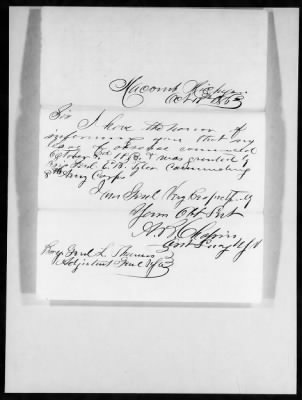 Macomb Michigan
Oct 1863
Sir
I have the honor of
informing you that my
leave of absence commenced
October 3d 1863 & was granted by
Brig Genl E. B. Tyler commanding
8th Army Corps
I am Genl Very Respectfully
Your Obt Servt
Brig Genl L. Thomas
Adjutant Genl